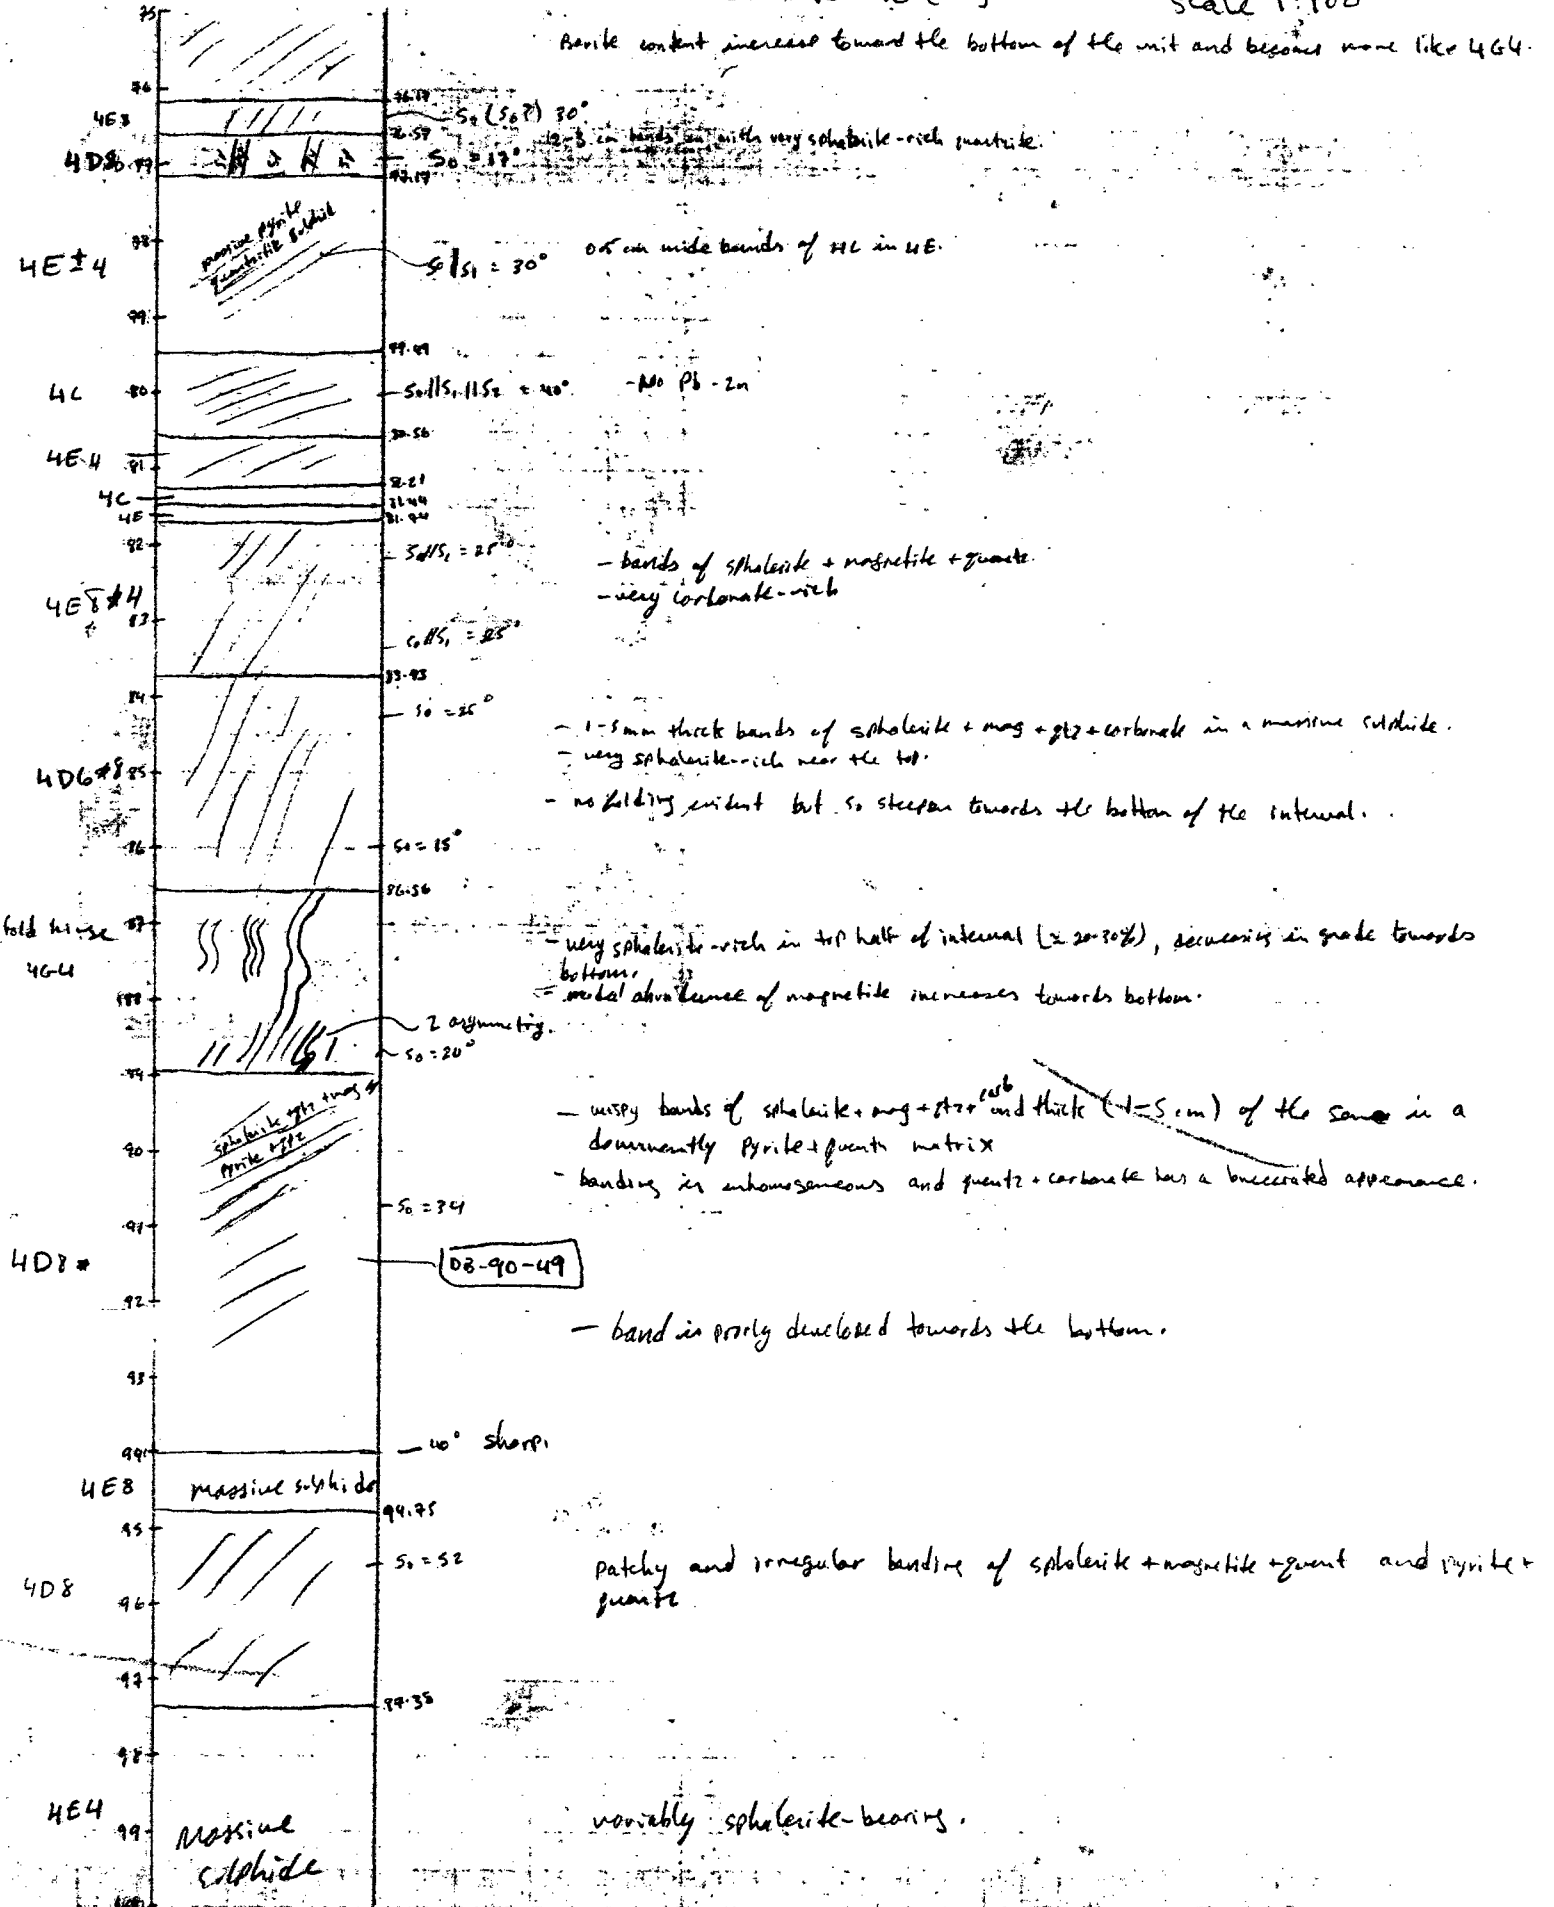 75
scale 1:100
Barite content increase toward the bottom of the unit and becomes more like 4G4.
76
76.17
4E3
S2 (S0?) 30°
76.57
2-3 cm bands with very sphalerite-rich quartzite.
4D8
77
S0 = 17°
77.17
massive pyrite
quartzitic sulphide
78
4E±4
S0∥S1 = 30°
0.5 cm wide bands of 4C in 4E.
79
79.49
4C
80
S0//S1//S2 = 40°
-No Pb-Zn
80.56
4E4
81
81.21
4C
81.44
4E
81.74
82
S0//S1 = 25°
- bands of sphalerite + magnetite + quartz.
- very carbonate-rich
4E8*4
83
S0//S1 = 25°
83.73
84
S0 = 25°
- 1-5mm thick bands of sphalerite + mag + qtz + carbonate in a massive sulphide.
- very sphalerite-rich near the top.
4D6*8
85
- no folding evident but S0 steepen towards the bottom of the interval.
86
S0 = 15°
86.56
fold hinge
87
4G4
- very sphalerite-rich in top half of interval (≈ 20-30%), decreasing in grade towards
bottom.
88
- modal abundance of magnetite increases towards bottom.
Z asymmetry.
S0 = 20°
89
sphalerite + qtz + mag
pyrite + qtz
- wispy bands of sphalerite + mag + qtz + carb and thick (1-5 cm) of the same in a
dominantly pyrite + quartz matrix
90
- banding is inhomogeneous and quartz + carbonate has a brecciated appearance.
S0 = 34
91
4D8*
DB-90-49
92
- band is poorly developed towards the bottom.
93
94
40° sharp.
4E8
massive sulphide
94.75
95
S0 = 52
patchy and irregular banding of sphalerite + magnetite + quart and pyrite +
quartz
4D8
96
97
97.35
98
4E4
99
Massive
sulphide
variably sphalerite-bearing.
100